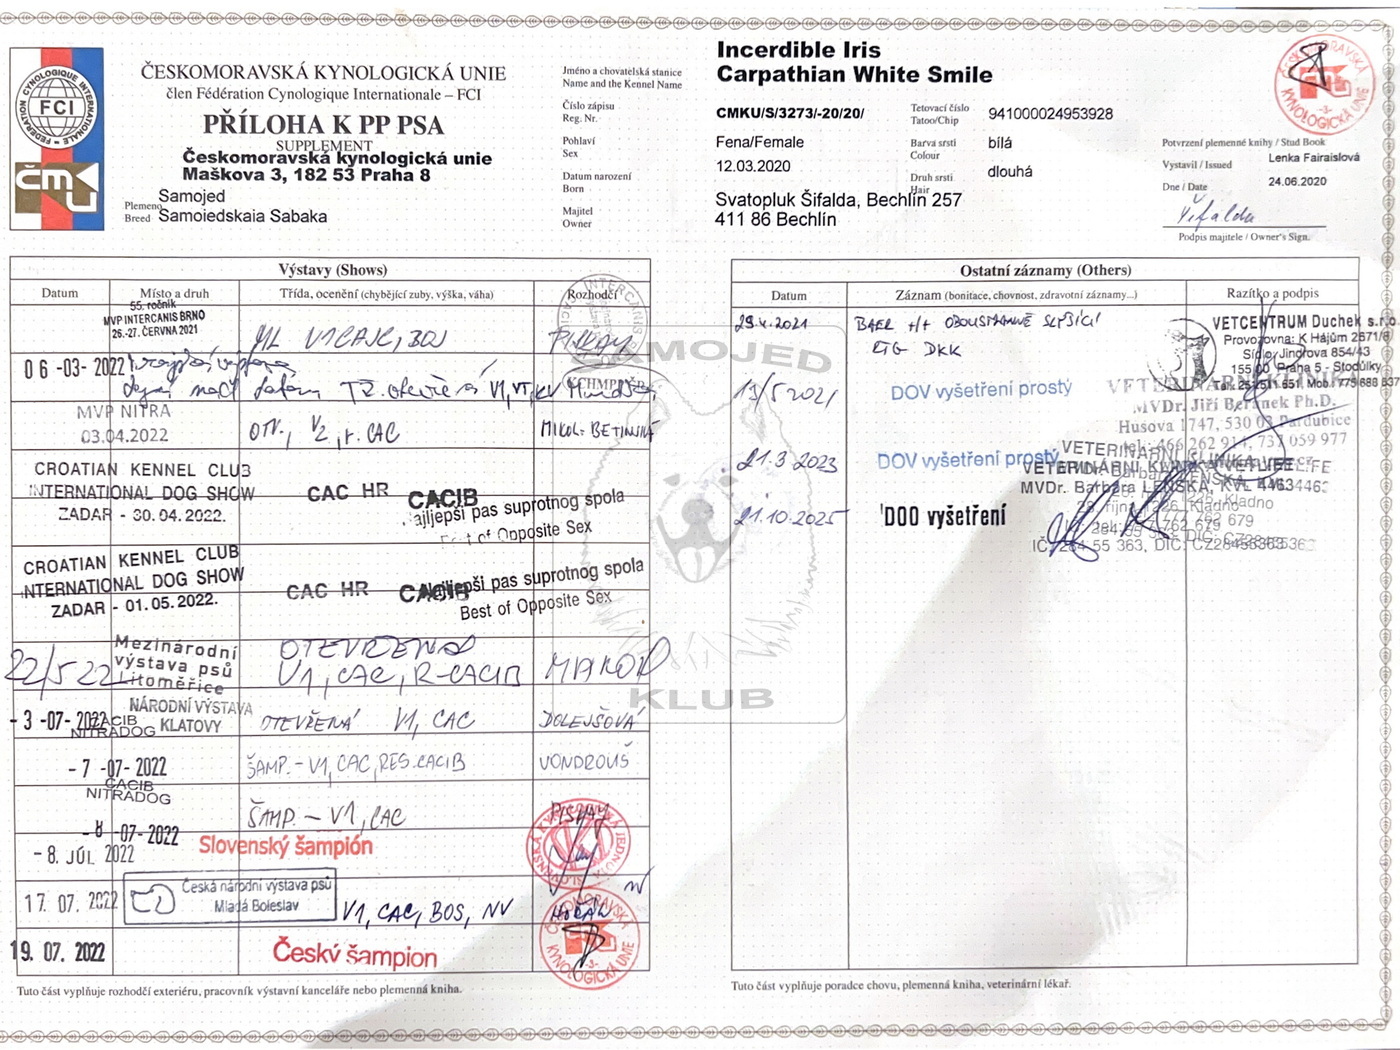 FÉDÉRATION CYNOLOGIQUE INTERNATIONALE
FCI
ČMKU
ČESKOMORAVSKÁ KYNOLOGICKÁ UNIE
člen Fédération Cynologique Internationale – FCI
PŘÍLOHA K PP PSA
SUPPLEMENT
Českomoravská kynologická unie
Maškova 3, 182 53 Praha 8
Plemeno
Breed
Samojed
Samoiedskaia Sabaka
Jméno a chovatelská stanice
Name and the Kennel Name
Incerdible Iris
Carpathian White Smile
Číslo zápisu
Reg. Nr.
CMKU/S/3273/-20/20/
Tetovací číslo
Tatoo/Chip
941000024953928
Pohlaví
Sex
Fena/Female
Barva srsti
Colour
bílá
Datum narození
Born
12.03.2020
Druh srsti
Hair
dlouhá
Majitel
Owner
Svatopluk Šifalda, Bechlín 257
411 86 Bechlín
Potvrzení plemenné knihy / Stud Book
Vystavil / Issued
Lenka Fairaislová
Dne / Date
24.06.2020
Šifalda
Podpis majitele / Owner's Sign.
Výstavy (Shows)
Datum Místo a druh Třída, ocenění (chybějící zuby, výška, váha) Rozhodčí
55. ročník
MVP INTERCANIS BRNO
26.-27. ČERVNA 2021
06 -03- 2022
MVP NITRA
03.04.2022
OTV., V2, r. CAC
CROATIAN KENNEL CLUB
INTERNATIONAL DOG SHOW
ZADAR - 30.04.2022.
CAC HR CACIB
Najljepši pas suprotnog spola
Best of Opposite Sex
CROATIAN KENNEL CLUB
INTERNATIONAL DOG SHOW
ZADAR - 01.05.2022.
CAC HR CACIB
Najljepši pas suprotnog spola
Best of Opposite Sex
22/5 22
Mezinárodní
výstava psů
Litoměřice
OTEVŘENÁ
V1, CAC, R-CACIB
- 3 -07- 2022
NÁRODNÍ VÝSTAVA
KLATOVY
OTEVŘENÁ V1, CAC
DOLEJŠOVÁ
CACIB
NITRADOG
- 7 -07- 2022
ŠAMP. - V1, CAC, RES. CACIB
VONDROUŠ
CACIB
NITRADOG
- 8 -07- 2022
ŠAMP. - V1, CAC
- 8. JÚL 2022
Slovenský šampión
17. 07. 2022
Česká národní výstava psů
Mladá Boleslav
V1, CAC, BOS, NV
19. 07. 2022
Český šampion
Tuto část vyplňuje rozhodčí exteriéru, pracovník výstavní kanceláře nebo plemenná kniha.
SAMOJED
KLUB
Ostatní záznamy (Others)
Datum Záznam (bonitace, chovnost, zdravotní záznamy...) Razítko a podpis
29.4.2021
BAER +/+ OBOUSTRANNĚ SLYŠÍCÍ
RTG DKK
VETCENTRUM Duchek s.r.o.
Provozovna: K Hájům 2671/8
Sídlo: Jindrova 854/43
155 00 Praha 5 - Stodůlky
13/5 2021
DOV vyšetření prostý
MVDr. Jiří Beránek Ph.D.
Husova 1747, 530 03 Pardubice
tel.: 466 262 914, 737 059 977
21.3 2023
DOV vyšetření prostý
VETERINÁRNÍ KLINIKA
21.10.2025
DOO vyšetření
MVDr. Barbara LENSKÁ, KVL 4463
Tuto část vyplňuje poradce chovu, plemenná kniha, veterinární lékař.